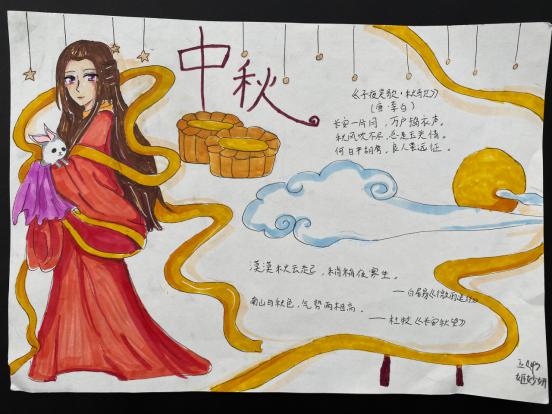 中秋
《子夜吴歌·秋歌》
(唐·李白)
长安一片月,万户捣衣声。
秋风吹不尽,总是玉关情。
何日平胡虏,良人罢远征。
漠漠秋云起,稍稍夜寒生。
——白居易《微雨夜行》
南山与秋色,气势两相高。
——杜牧《长安秋望》